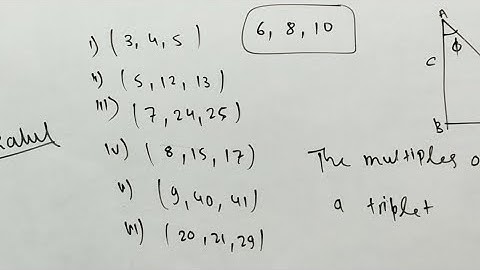 i) (3, 4, 5)
6, 8, 10
ii) (5, 12, 13)
iii) (7, 24, 25)
iv) (8, 15, 17)
v) (9, 40, 41)
vi) (20, 21, 29)
A
ϕ
C
B
The multiples
a triplet